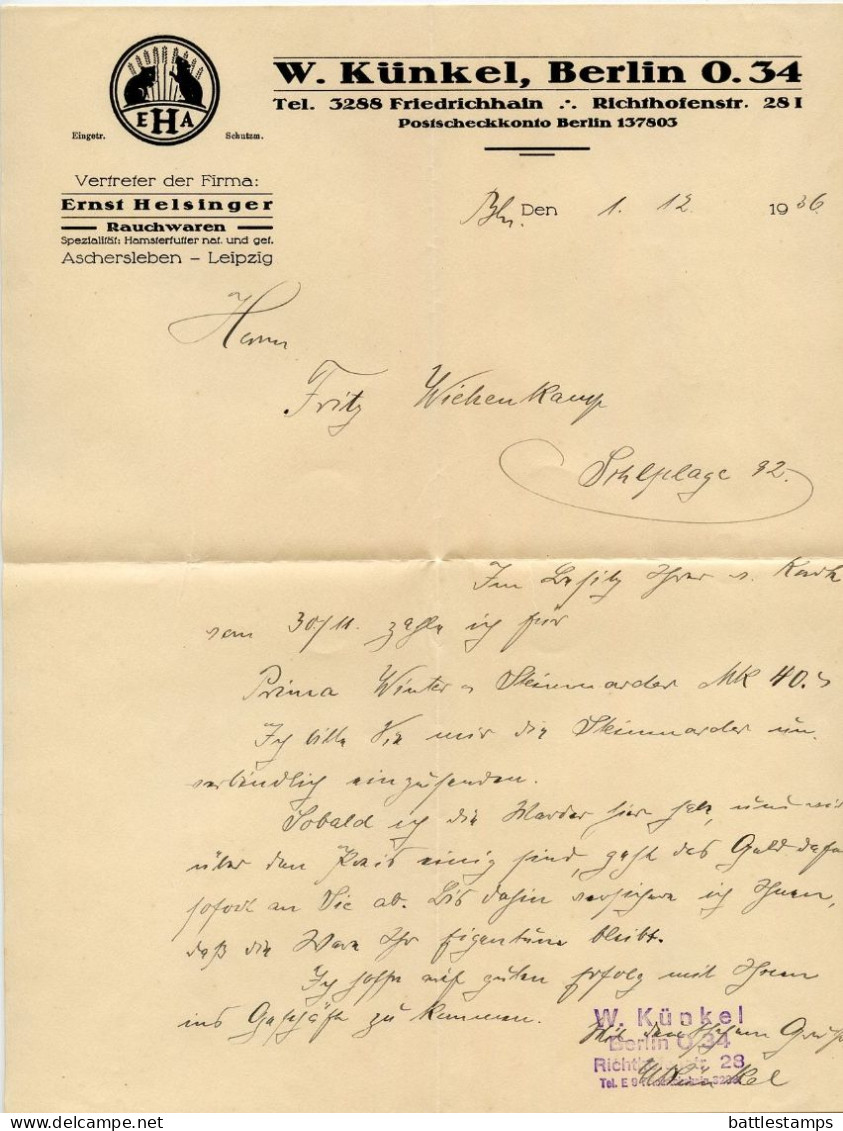 W. Künkel, Berlin O. 34
Tel. 3288 Friedrichhain ∴ Richthofenstr. 28 I
Postscheckkonto Berlin 137803
EHA
Eingetr. Schutzm.
Vertreter der Firma:
Ernst Helsinger
Rauchwaren
Spezialität: Hamsterfutter nat. und gef.
Aschersleben – Leipzig
Bln. Den 1. 12. 1936.
Herrn
Fritz Wiehenkamp
92.
Im Besitz Ihrer w. Karte
vom 30/11. zahle ich für
Prima Winter Steinmarder Mk 40.
Ich bitte Sie mir die Steinmarder un
verbindlich einzusenden.
Sobald ich die Marder hier habe, und wir
über den Preis einig sind, geht das Geld dafür
sofort an Sie ab. Bis dahin versichere ich Ihnen,
daß die Ware Ihr Eigentum bleibt.
Ich hoffe auf guten Erfolg mit Ihnen
ins Geschäft zu kommen.
Mit deutschem Gruß
W. Künkel
Berlin O 34
Richthofenstr. 28
WKünkel
battlestamps